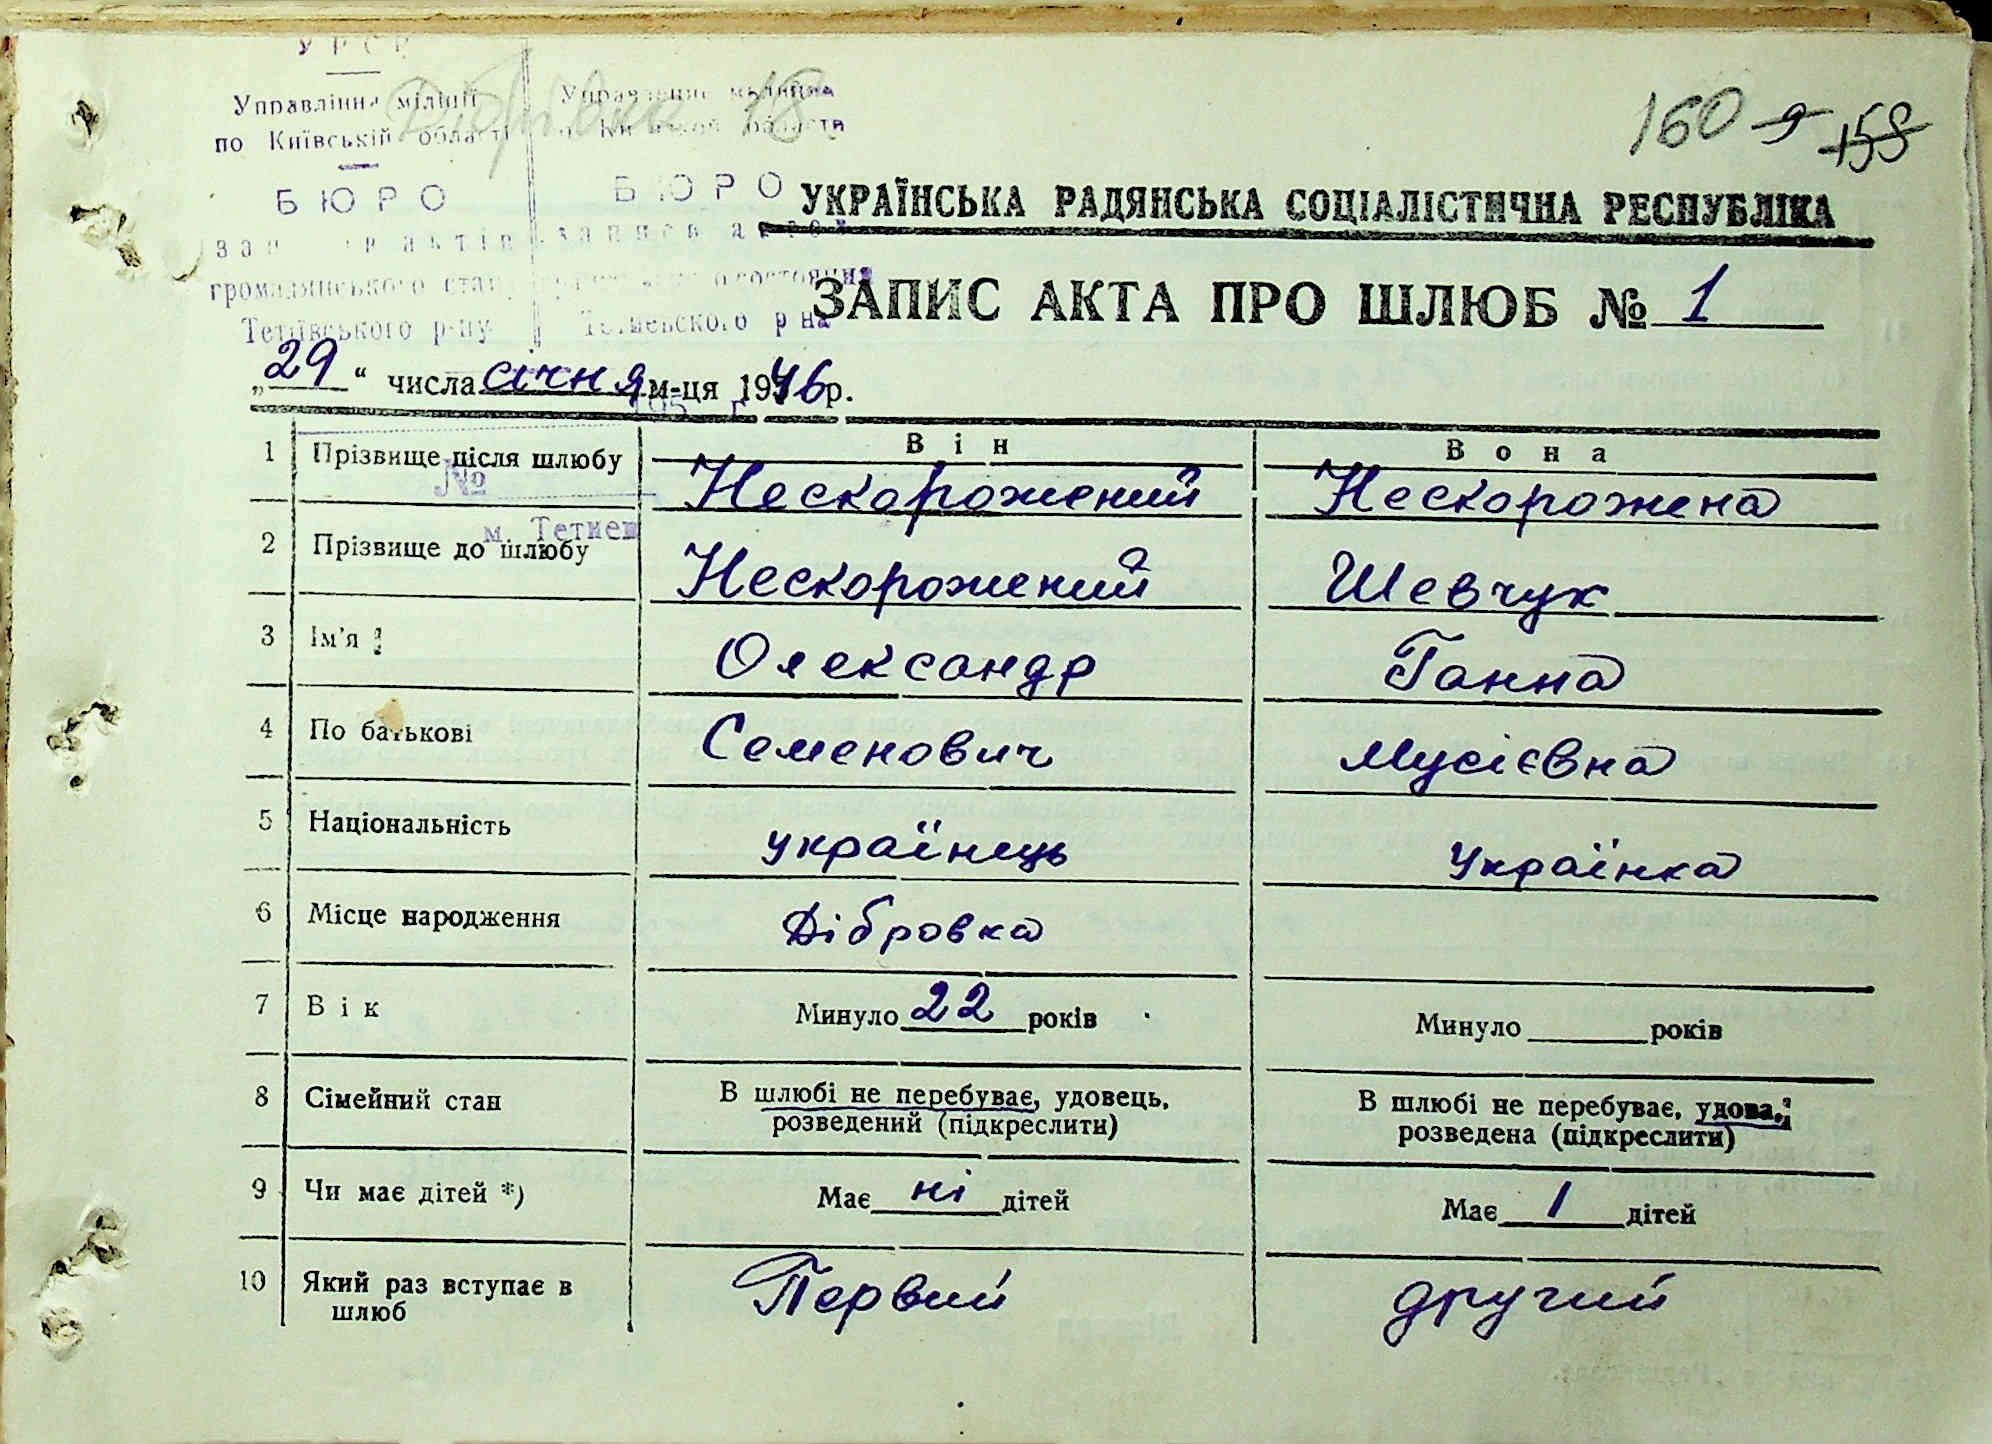 УРСР
Управління міліції
по Київській області
Управление милиции
по Киевской области
Дібрівка 18
160 9 158
БЮРО
БЮРО
записів актів
записей актов
УКРАЇНСЬКА РАДЯНСЬКА СОЦІАЛІСТИЧНА РЕСПУБЛІКА
громадянського стану
гражданского состояния
Тетіївського р-ну
Тетиевского р-на
ЗАПИС АКТА ПРО ШЛЮБ № 1
„29“ числа січня м-ця 1946р.
195 г.
Він
Вона
1 Прізвище після шлюбу Нескорожений Нескорожена
№
м. Тетиев
2 Прізвище до шлюбу Нескорожений Шевчук
3 Ім'я Олександр Ганна
4 По батькові Семенович Мусієвна
5 Національність українець Українка
6 Місце народження Дібровка
7 Вік Минуло 22 років Минуло років
8 Сімейний стан В шлюбі не перебуває, удовець, В шлюбі не перебуває, удова,
розведений (підкреслити) розведена (підкреслити)
9 Чи має дітей *) Має ні дітей Має 1 дітей
10 Який раз вступає в Первий другий
шлюб